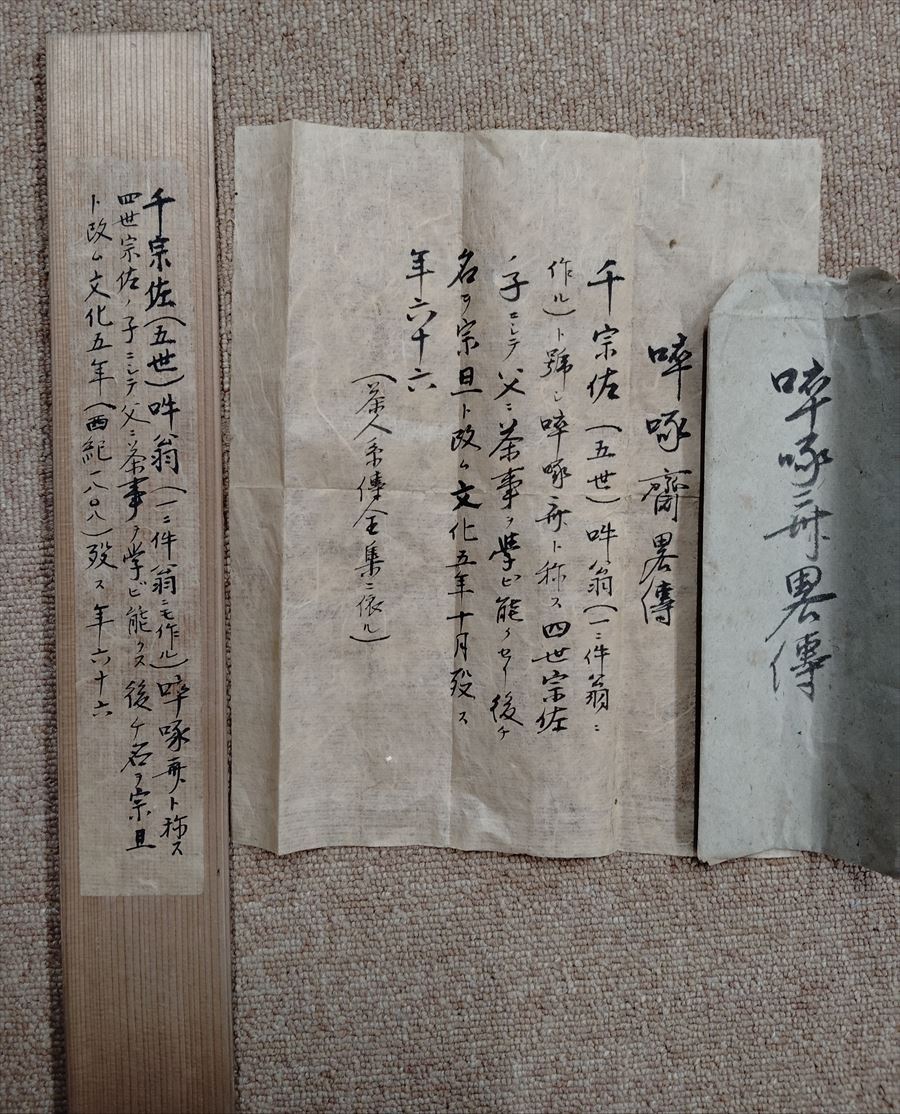 啐啄斎畧傳
啐啄齋畧傳
千宗佐(五世)吽翁(一ニ件翁ニ
作ル)ト號シ啐啄斎ト称ス四世宗佐
子ニシテ父ニ茶事ヲ学ビ能クセリ後チ
名ヲ宗旦ト改ム文化五年十月歿ス
年六十六
(茶人系傳全集ニ依ル)
千宗佐(五世)吽翁(一ニ件翁ニモ作ル)啐啄斎ト称ス
四世宗佐ノ子ニシテ父ニ茶事ヲ学ビ能クス後チ名ヲ宗旦
ト改ム文化五年(西紀一八〇八)歿ス年六十六